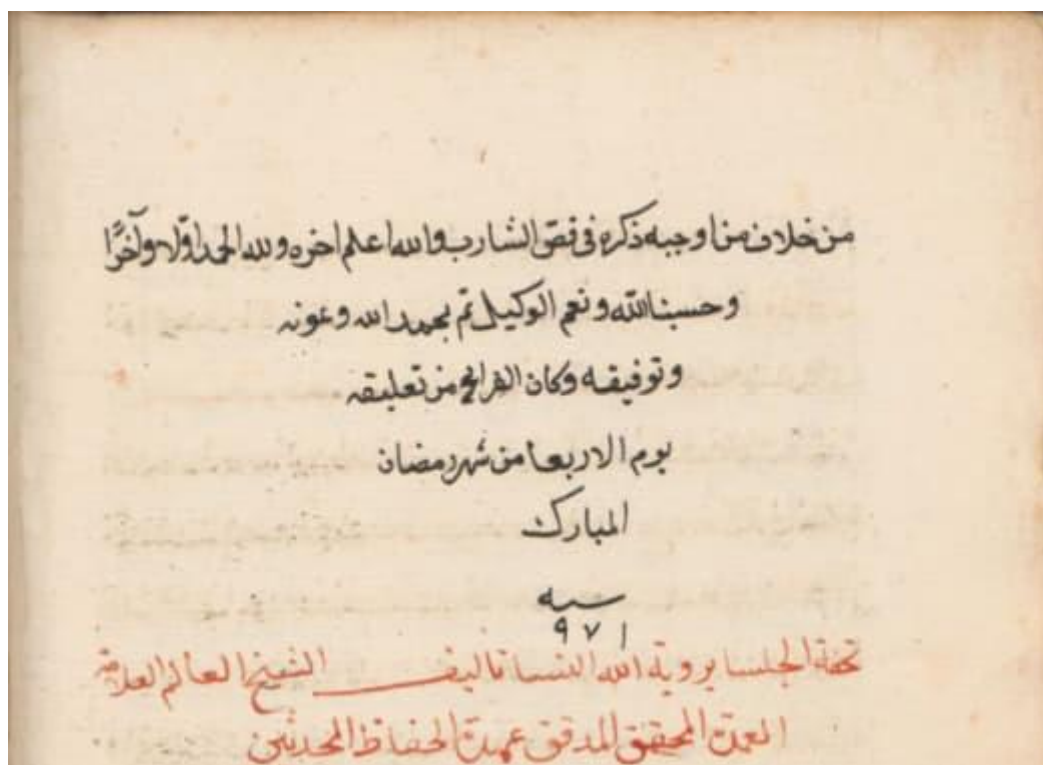 من خلاف من اوجبه ذكره فى قص الشارب والله اعلم اخره ولله الحمد اوّلا وآخرًا
وحسبنا الله ونعم الوكيل تم بحمد الله وعونه
وتوفيقه وكان الفراغ من تعليقه
يوم الاربعا من شهر رمضان
المبارك
سنه
٩٧١
تحفة الجلسا بروية الله للنسا تاليف الشيخ العالم العلامة
العمدة المحقق المدقق عمدة الحفاظ المحدثين